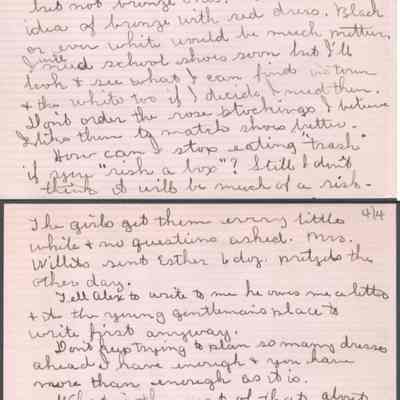 but not bronze ones.
idea of bronze with red dress. Black
or even white would be much better.
I will need school shoes soon but I'll
look & see what I can find in town
& the white too if I decide I need them.
Don't order the rose stockings I believe
I like them to match shoes better.
How can I stop eating "trash"
if you "risk a box"? Still I don't
think it will be much of a risk.
The girls get them every little 4/4
while & no questions asked. Mrs.
Willits sent Esther 6 doz. pretzels the
other day.
Tell Alex to write to me he owes me a letter
& it the young gentleman's place to
write first anyway.
Don't keep trying to plan so many dresses
ahead I have enough & you have
more than enough as it is.
What is the rest of that about